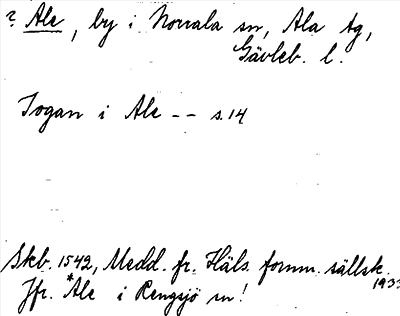 ? Ale, by i Norrala sn, Ala tg,
Gävleb. l.
Jogan i Ale -- s. 14
Skb. 1542, Medd. fr. Häls. fornm. sällsk.
1933
Jfr. *Ale i Rengsjö sn!